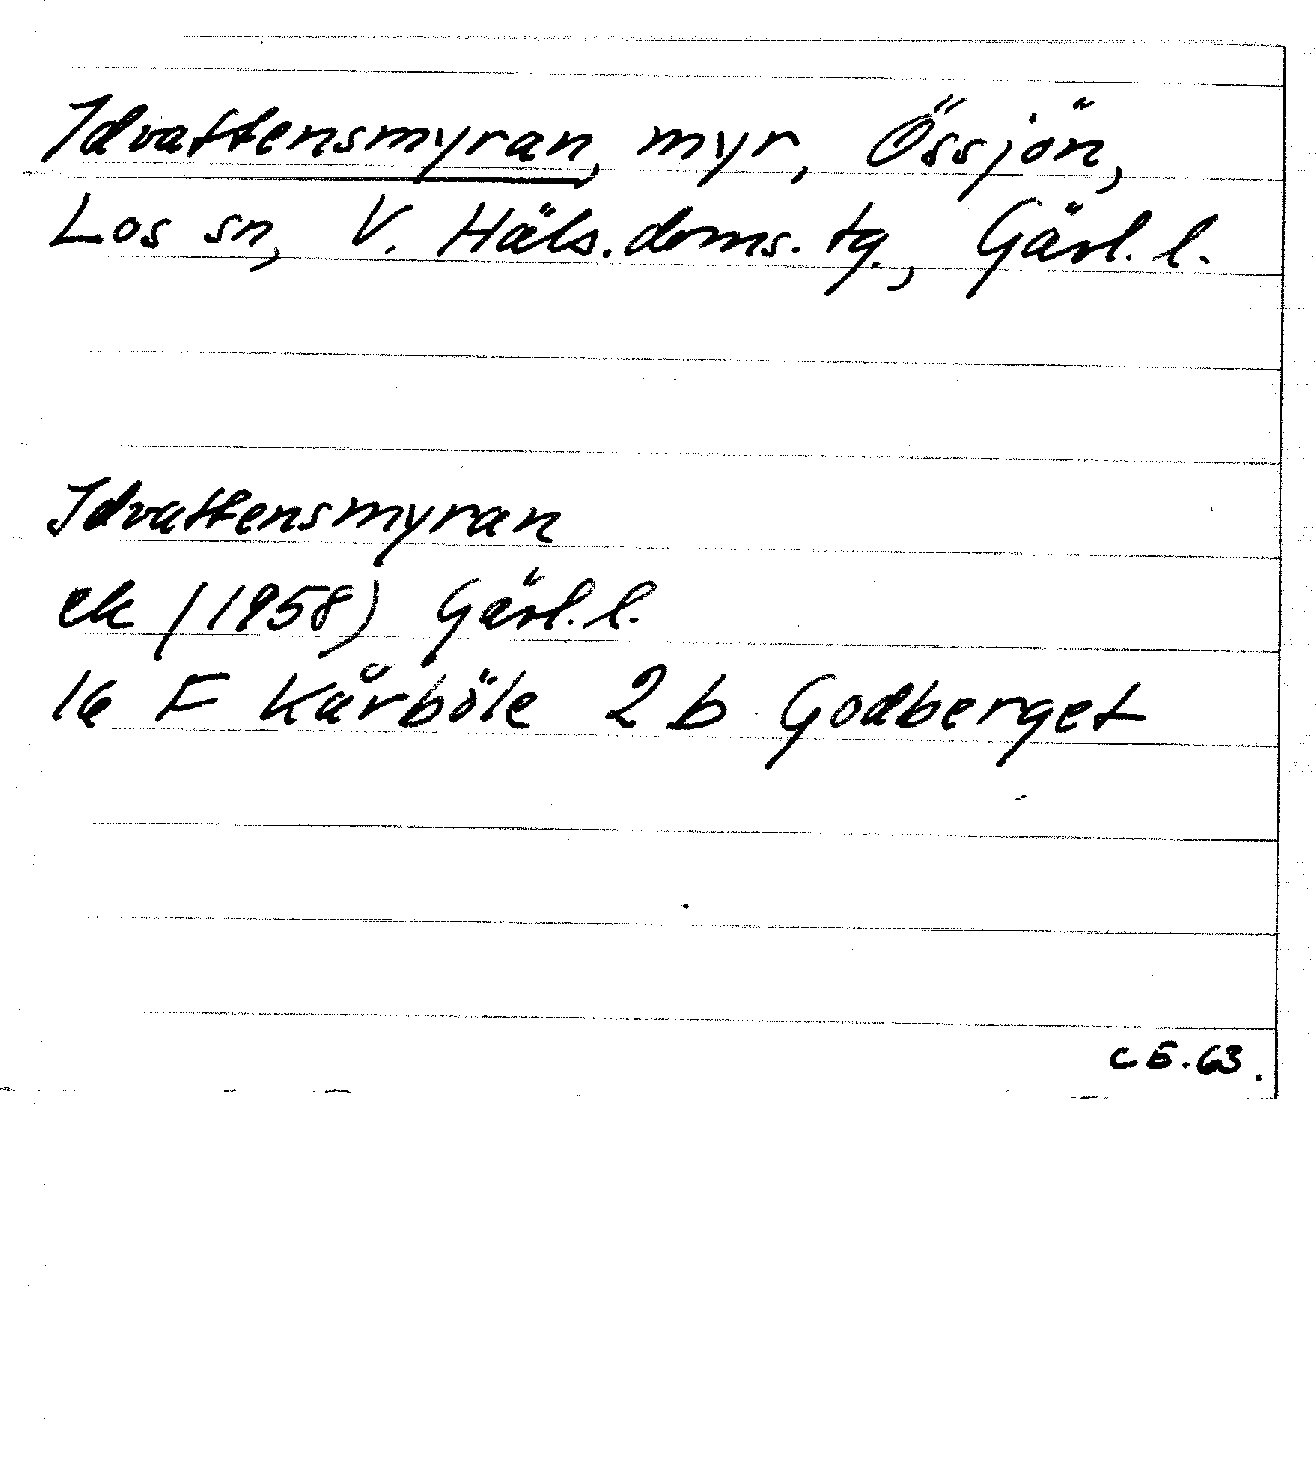 Idvattensmyran, myr, Össjön,
Los sn, V. Häls. doms. tg., Gävl. l.
Idvattensmyran
ek (1958) Gävl. l.
16 F Kårböle 2 b Godberget
C E. 63.